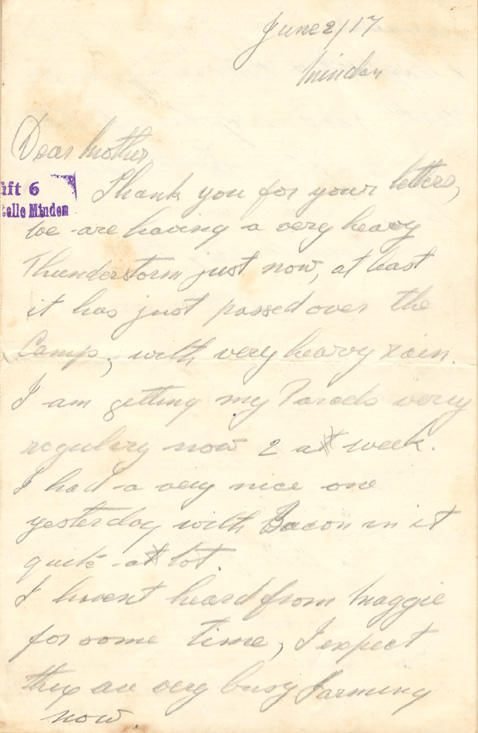 June 2/17
Minden
Dear Mother,
ift 6
telle Minden
Thank you for your letters,
we are having a very heavy
Thunderstorm just now, at least
it has just passed over the
Camp, with very heavy rain.
I am getting my Parcels very
regulery now 2 a week.
I had a very nice one
yesterday with Bacon in it
quite a lot.
I havent heard from Maggie
for some time, I expect
they are very busy farming
now.